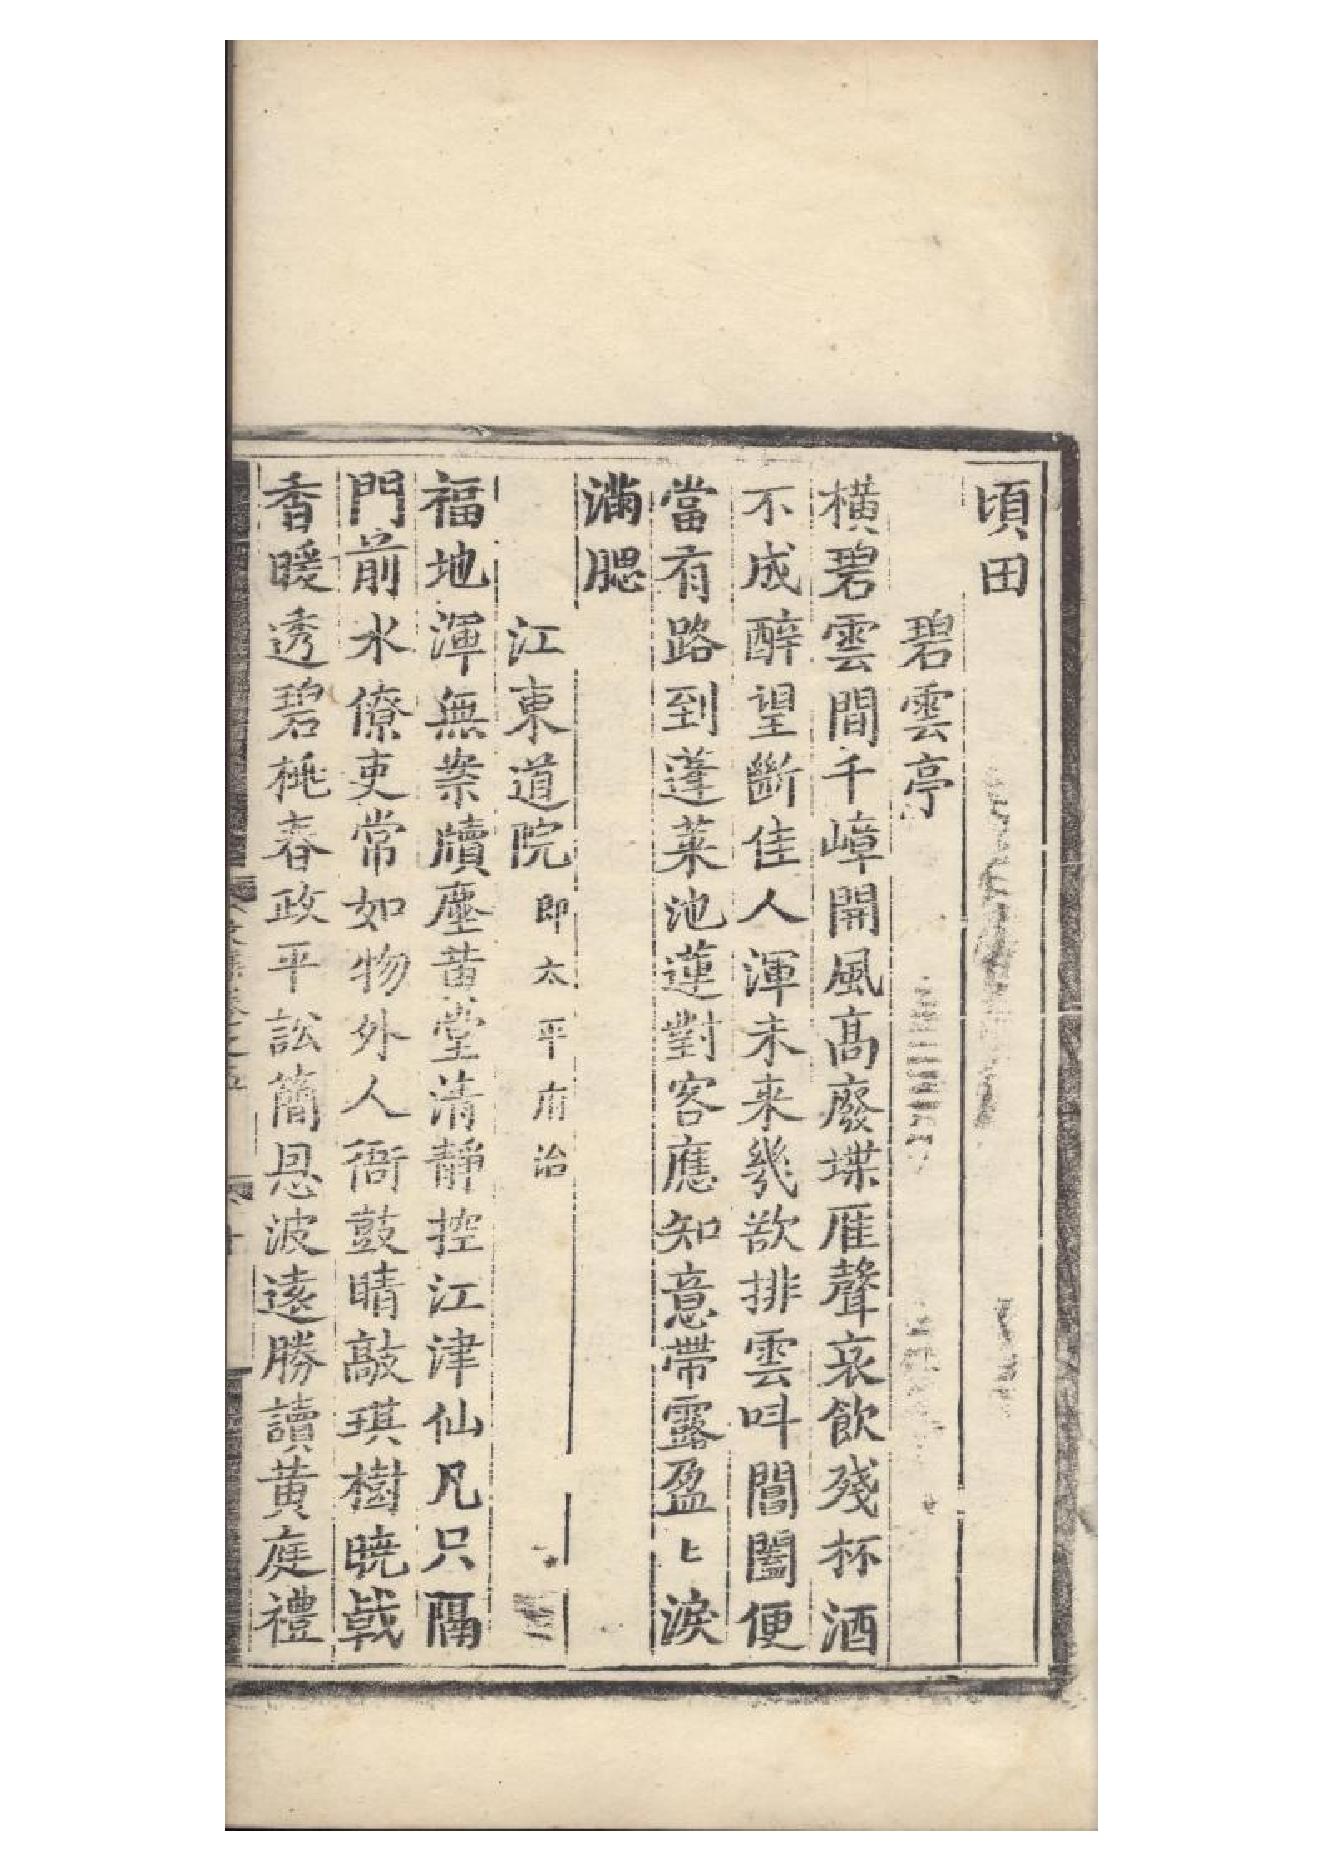 頃田
碧雲亭
橫碧雲間千嶂開風髙廢堞雁聲哀飲殘杯酒
不成醉望斷佳人渾未来幾欲排雲呌閶闔便
當有路到蓬萊池蓮對客應知意帶露盈〻淚
滿腮
江東道院即太平府治
福地渾無案牘塵黃堂清靜控江津仙凡只隔
門前水僚吏常如物外人衙鼓晴敲琪樹曉戟
香暖透碧桃春政平訟簡恩波遠勝讀黃庭禮